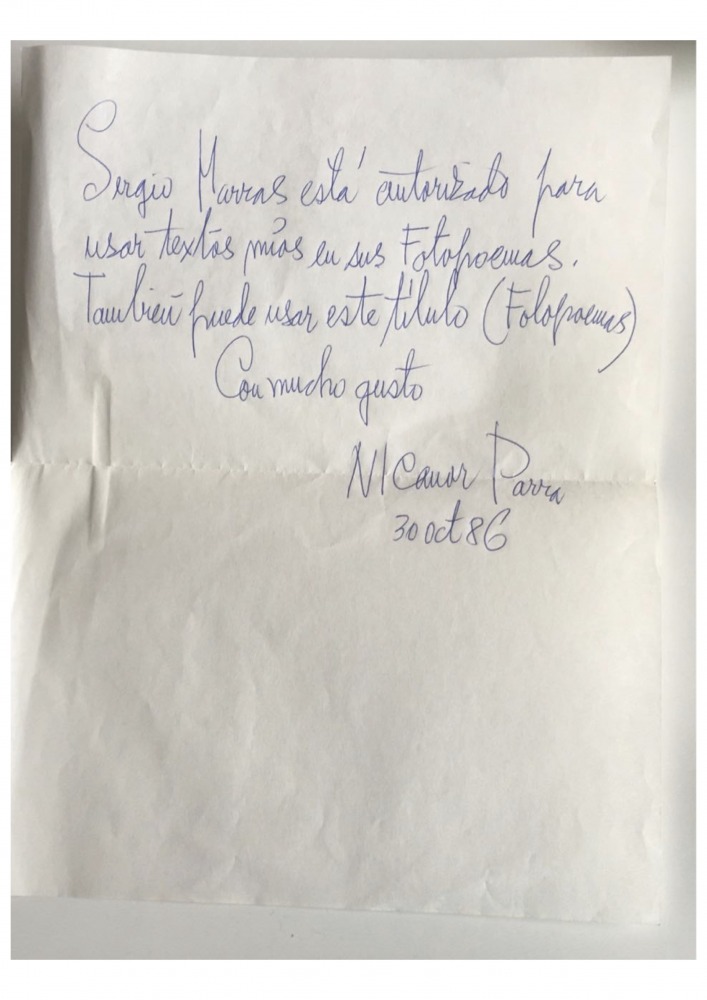 Sergio Marras está autorizado para
usar textos míos en sus Fotopoemas.
También puede usar este título (Fotopoemas)
Con mucho gusto
NIcanor Parra
30 oct 86